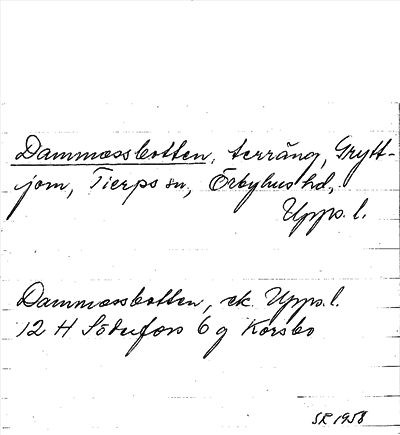 Dammossbotten, terräng, Grytt-
jom, Tierps sn, Örbyhus hd,
Upps. l.
Dammossbotten, ek. Upps. l.
12 H Söderfors 6 g Korsbo
SR 1958